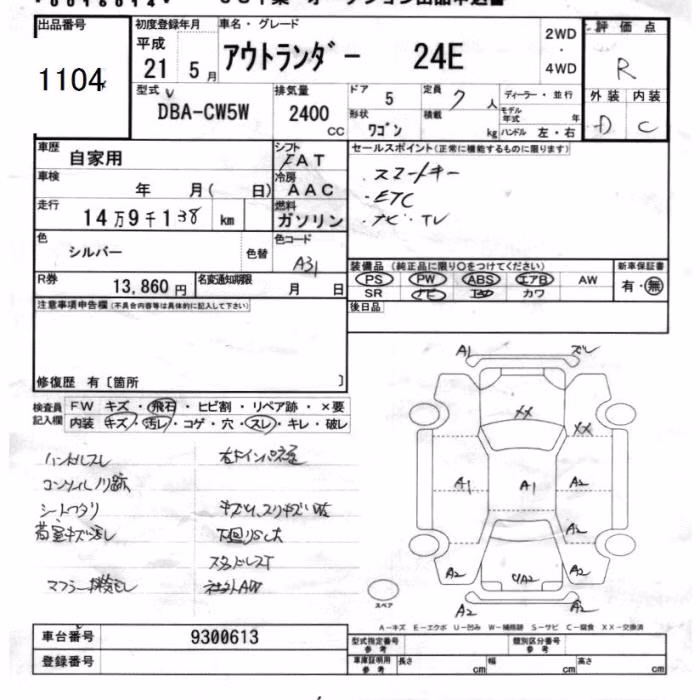 出品番号 初度登録年月 車名・グレード 2WD ・ 4WD 評価点
1104 平成 21 5月 アウトランダー 24E R
型式 DBA-CW5W 排気量 2400 CC ドア 5 定員 7 人 ディーラー・並行 外装 内装
形状 ワゴン 積載 kg モデル年式 年 ハンドル 左・右 D C
車歴 自家用 シフト FAT セールスポイント(正常に機能するものに限ります)
車検 年 月( 日) 冷房 AAC ・スマートキー
走行 14万9千138 km 燃料 ガソリン ・ETC
・ナビ・TV
色 シルバー 色替 色コード A31
装備品 (純正品に限り○をつけてください) 新車保証書
R券 13,860円 名変通知期限 月 日 PS PW ABS エアB AW 有・無
SR ナビ カワ
注意事項申告欄(不具合内容等は具体的に記入して下さい) 後日品
修復歴 有〔箇所 〕
検査員記入欄 FW キズ・飛石・ヒビ割・リペア跡・×要
内装 キズ・汚レ・コゲ・穴・スレ・キレ・破レ
ハンドルスレ
コンソールノリ跡
シートヘタリ
荷室キズ汚レ
下回りS大
社外AW
A1 ズレ
XX XX
A1 A1 A2
A2
A2 UA2 A2
A2 A2
スペア
A-キズ E-エクボ U-凹み W-補修跡 S-サビ C-腐食 XX-交換済
車台番号 9300613 型式指定番号 参考 類別区分番号 参考
登録番号 車庫証明用 参考 長さ cm 幅 cm 高さ cm